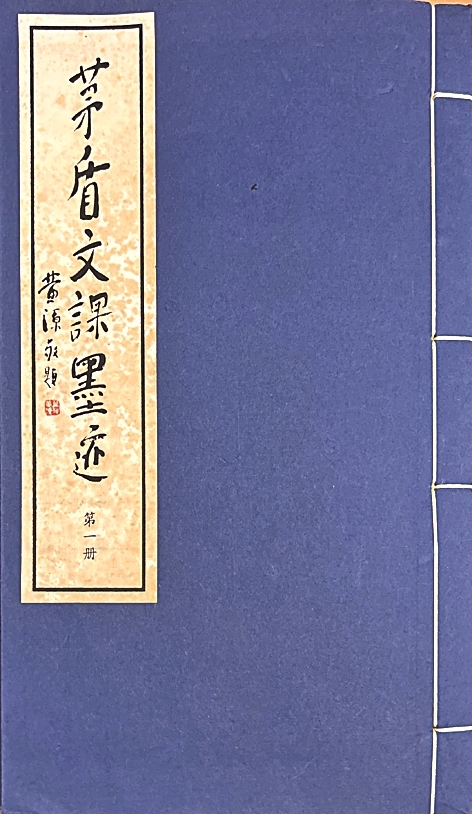 茅盾文課墨迹
黄源敬題
第一册